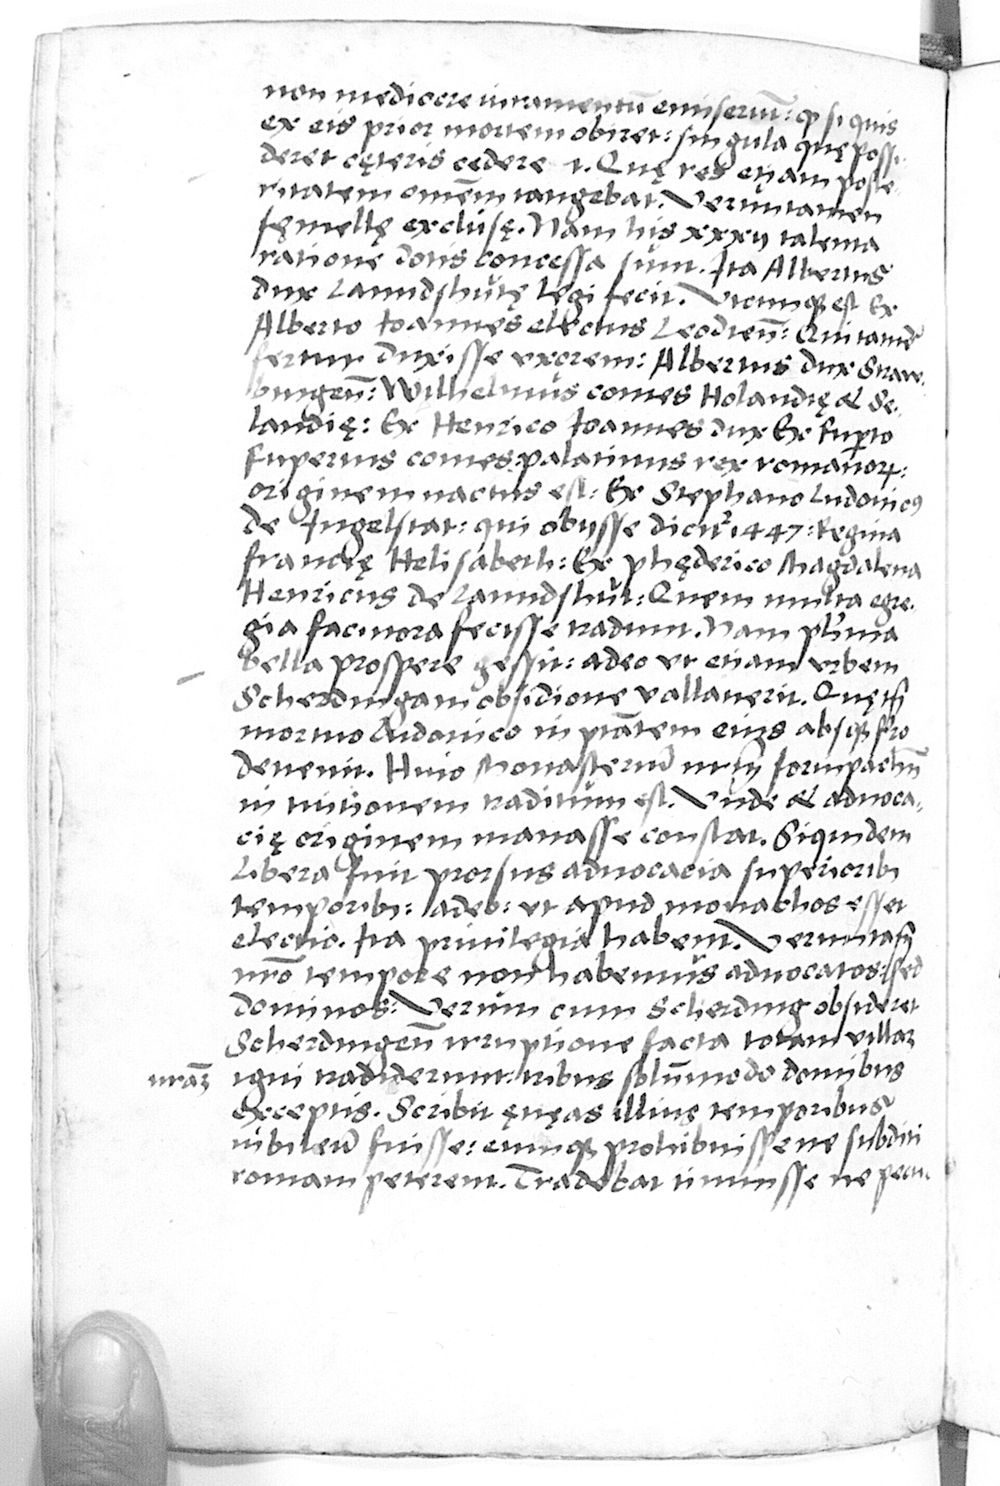 non mediocre iuramentū emiserūt: ꝙ si quis
ex eis prior mortem obiret: singula quę possi-
deret cęteris cędere t. Quę res etiam poste-
ritatem omēm tangebat. Veruntamen
fęmellę exclusę. Nam his xxxij talenta
ratione dotis concessa sunt. Ita Albertus
dux Lanndshutę legi fecit. Vtcunqꝫ est Ex
Alberto Ioannes electus Leodien̄: Qui tandē
fertur duxisse vxorem: Albertus dux Straw-
bingen̄: Wilhelmus comes Holandię & Se-
landię: Ex Henrico Ioannes dux Ex Ruꝑto
Rupertus comes palatinus rex romanoꝝ:
originem nactus est: Ex Stephano Ludouicꝰ
de Ingelstat: qui obijsse dicit᷑ 1447: Regina
francię Helisabeth: Ex phęderico Magdalena
Henricus de Lanndshut: Quem multa egre-
gia facinora fecisse tradunt. Nam pl̄ima
bella prospere gessit: adeo vt etiam vrbem
Scherdingam obsidione vallauerit. Quę tn̄
mortuo Ludouico in ptātem eius absqꝫ f̄ro
deuenit. Huic Monasteriū nr̄m̄ formpachn̄
in tuitionem traditum est. Vnde & aduoca-
cię originem manasse constat. Siquidem
Libera fuit prorsus aduocacia superiorib;
temporib;: adeo: vt apud monachos esset
electio. Ita priuilegia habent. Veruntn̄
nr̄o tempore non habemus aduocatos: sed
dominos: Verum cum Scherding obsideret
Scherdingen̄ irruptione facta totam villaꝫ
nr̄aꝫ igni tradiderunt: tribus solūmodo domibus
exceptis. Scribit ęnęas illius temporibus
iubileū fuisse: eumqꝫ prohibuisse ne subditi
romam peterent. Tradebat timuisse ne pecu-